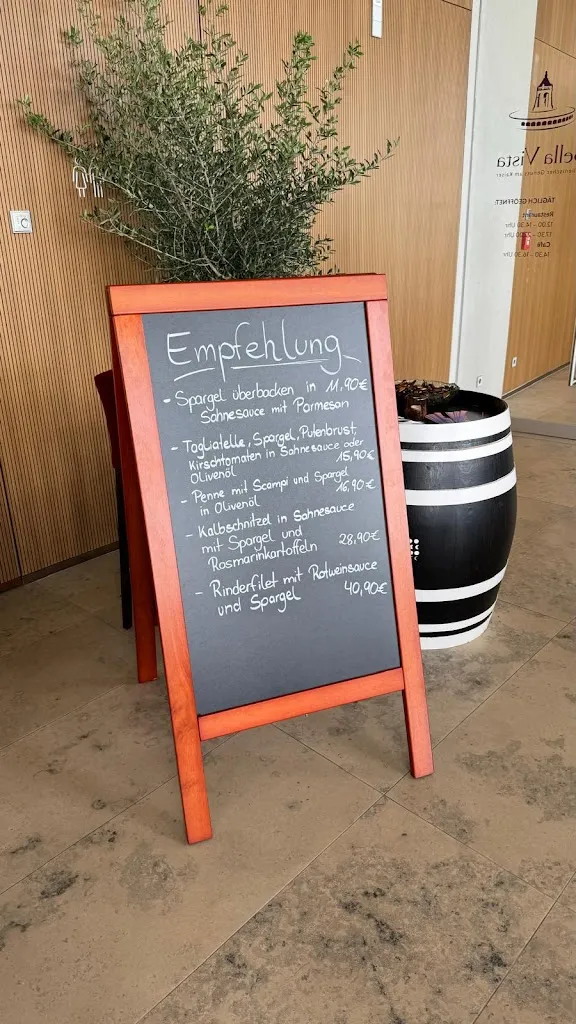 Empfehlung
- Spargel überbacken in 11,90€
Sahnesauce mit Parmesan
- Tagliatelle, Spargel, Putenbrust,
Kirschtomaten in Sahnesauce oder
Olivenöl 15,90€
- Penne mit Scampi und Spargel
in Olivenöl 16,90€
- Kalbschnitzel in Sahnesauce
mit Spargel und
Rosmarinkartoffeln 28,90€
- Rinderfilet mit Rotweinsauce
und Spargel 40,90€
bella Vista
TÄGLICH GEÖFFNET:
Restaurant
12.00 - 14.30 Uhr
17.30 - 22.00 Uhr
Café
14.30 - 16.30 Uhr